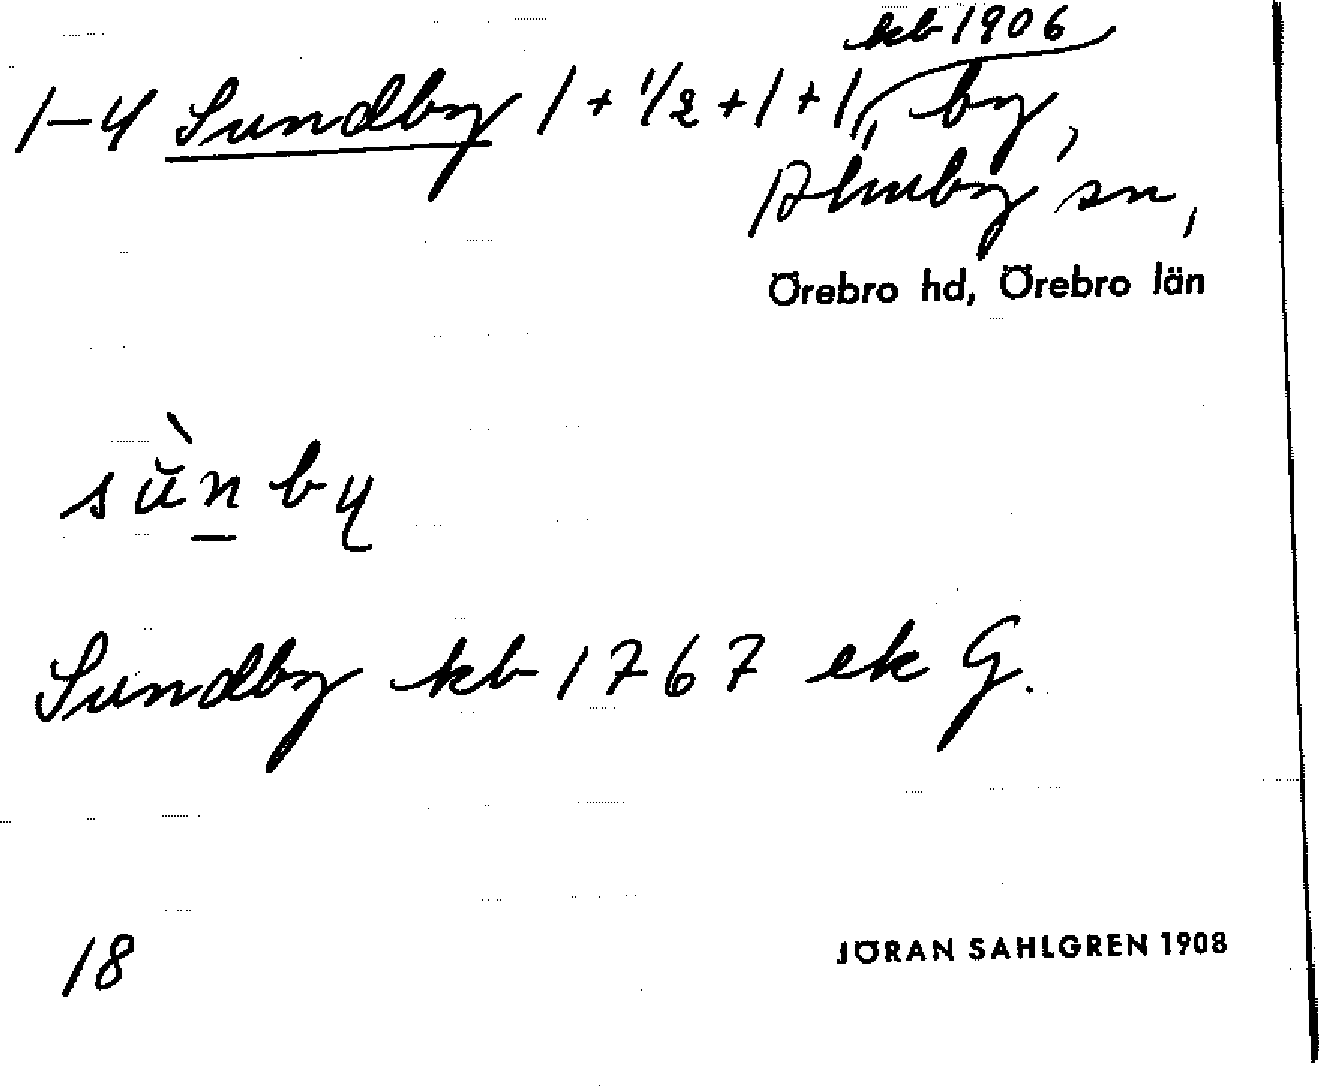 kb 1906
1–4 Sundby 1 + 1/2 + 1 + 1, by,
Almby sn,
Örebro hd, Örebro län
sùn by
Sundby kb 1767 ek G.
18
JÖRAN SAHLGREN 1908